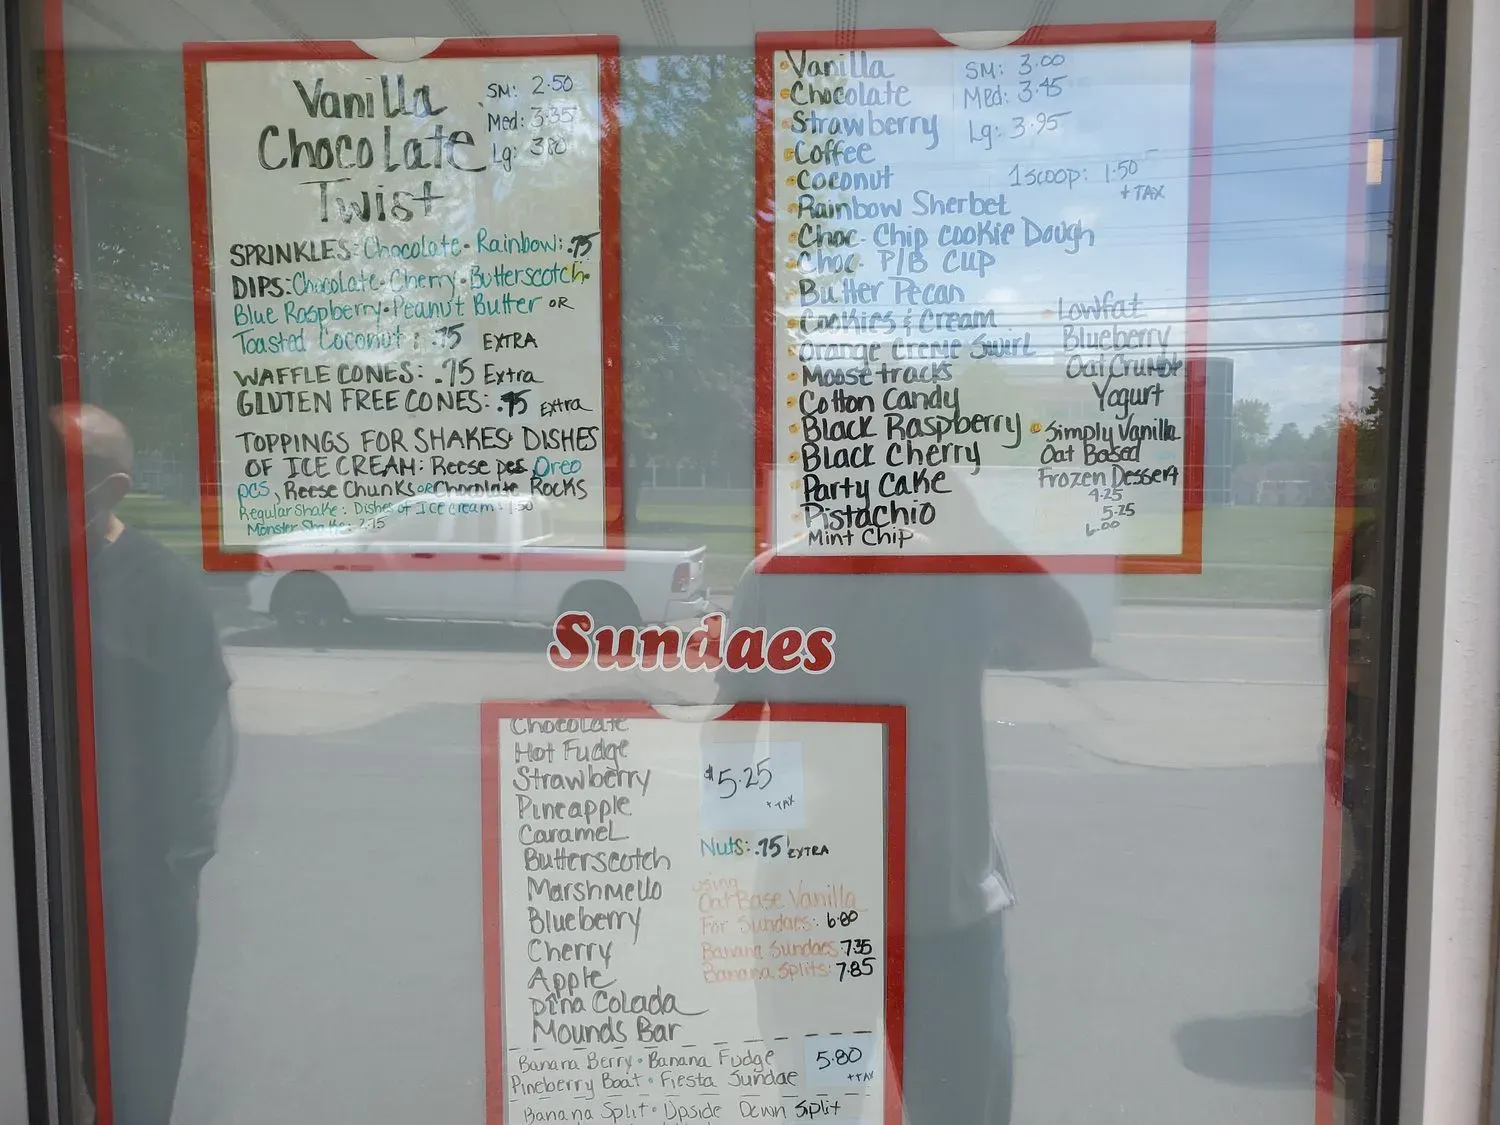 Vanilla SM: 2.50
Chocolate Med: 3.35
Twist Lg: 3.80
SPRINKLES: Chocolate • Rainbow: .75
DIPS: Chocolate • Cherry • Butterscotch •
Blue Raspberry • Peanut Butter OR
Toasted Coconut: .75 EXTRA
WAFFLE CONES: .75 Extra
GLUTEN FREE CONES: .75 Extra
TOPPINGS FOR SHAKES & DISHES
OF ICE CREAM: Reese pcs, Oreo
pcs, Reese Chunks OR Chocolate Rocks
Regular Shake: Dishes of Ice Cream: 1.50
Monster Shake: 2.75
Vanilla SM: 3.00
Chocolate Med: 3.45
Strawberry Lg: 3.95
Coffee
Coconut 1 scoop: 1.50
+ TAX
Rainbow Sherbet
Choc. Chip Cookie Dough
Choc. P/B Cup
Butter Pecan
Cookies & Cream
Orange Creme Swirl
Moosetracks
Cotton Candy
Black Raspberry
Black Cherry
Party Cake
Pistachio
Mint Chip
Lowfat
Blueberry
Oat Crumble
Yogurt
Simply Vanilla
Oat Based
Frozen Dessert
4.25
5.25
6.00
Sundaes
Chocolate
Hot Fudge
Strawberry
Pineapple
Caramel
Butterscotch
Marshmello
Blueberry
Cherry
Apple
Pina Colada
Mounds Bar
$5.25
+ TAX
Nuts: .75 EXTRA
using
Oat Base Vanilla
For Sundaes: 6.80
Banana Sundaes: 7.35
Banana Splits: 7.85
Banana Berry • Banana Fudge 5.80
Pineberry Boat • Fiesta Sundae + TAX
Banana Split • Upside Down Split